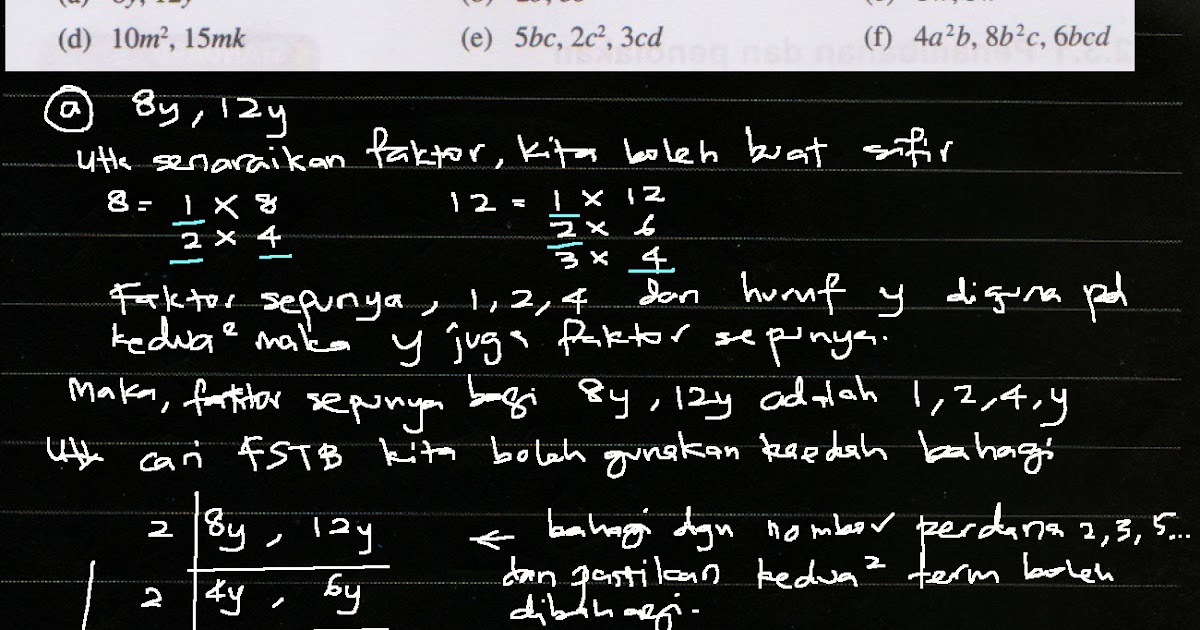 (d) 10m², 15mk (e) 5bc, 2c², 3cd (f) 4a²b, 8b²c, 6bcd
(a) 8y, 12y
Utk senaraikan faktor, kita boleh buat sifir
8 = 1 × 8 12 = 1 × 12
2 × 4 2 × 6
3 × 4
Faktor sepunya, 1, 2, 4 dan huruf y diguna pd
kedua² maka y juga faktor sepunya.
Maka, faktor sepunya bagi 8y, 12y adalah 1, 2, 4, y
Utk cari FSTB kita boleh gunakan kaedah bahagi
2 | 8y, 12y ← bahagi dgn nombor perdana 2, 3, 5...
2 | 4y, 6y dan pastikan kedua² term boleh
dibahagi.